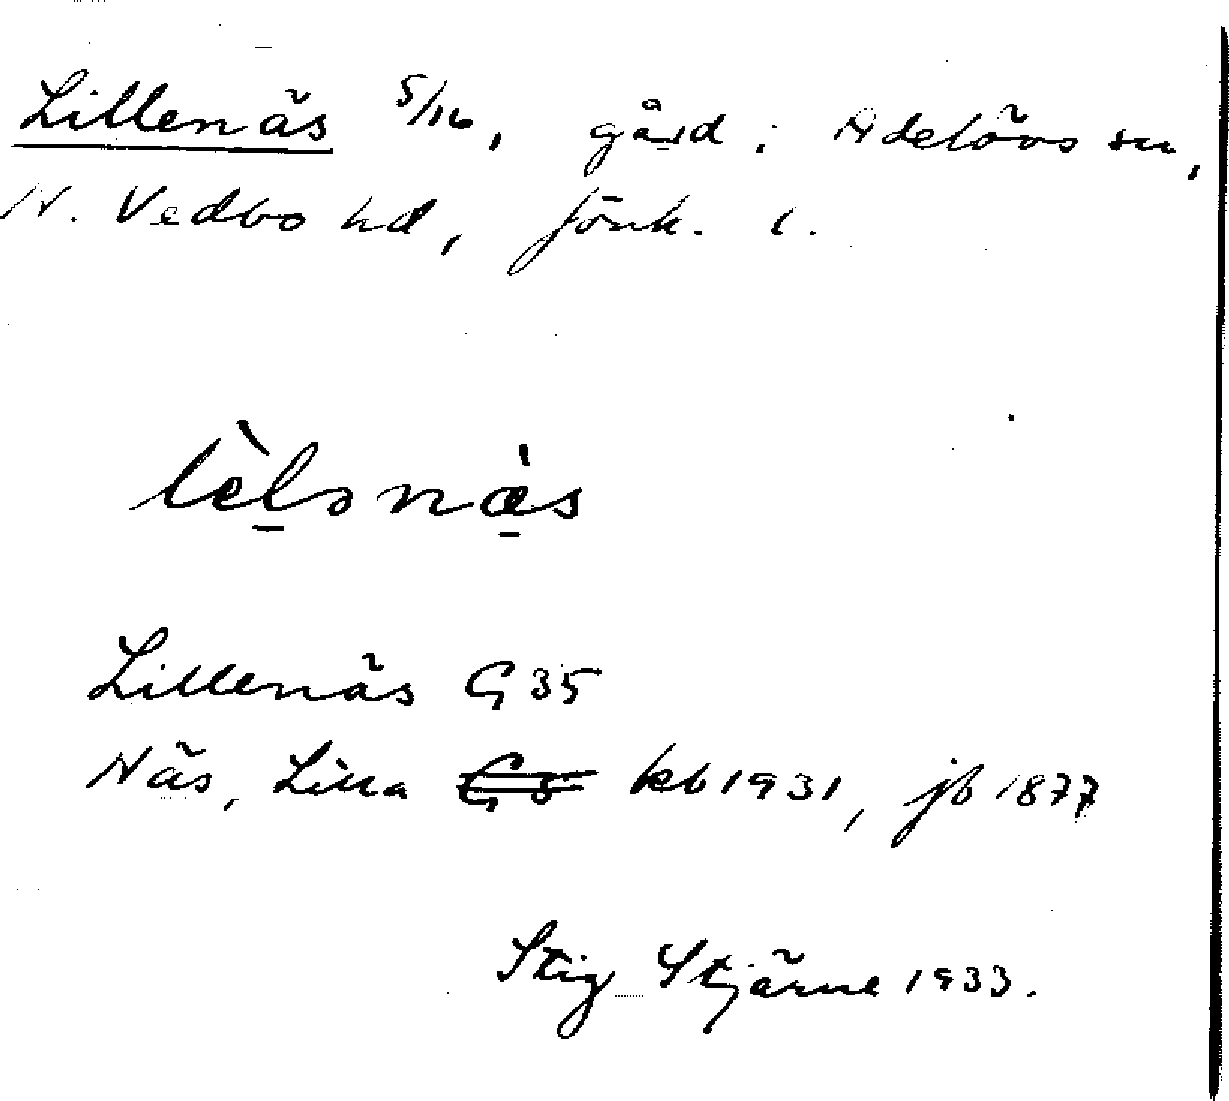 Lillenäs 5/16, gård i Adelövs sn,
N. Vedbo hd, Jönk. l.
lèlsnæs
Lillenäs G 35
Näs, Lilla kb 1931, jb 1877
Stig Stjärne 1933.